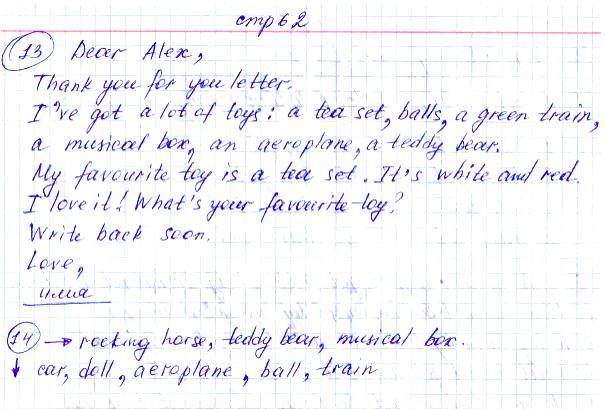 стр 62
13 Dear Alex,
Thank you for you letter.
I've got a lot of toys: a tea set, balls, a green train,
a musical box, an aeroplane, a teddy bear.
My favourite toy is a tea set. It's white and red.
I love it! What's your favourite toy?
Write back soon.
Love,
имя
14 → rocking horse, teddy bear, musical box.
↓ car, doll, aeroplane, ball, train